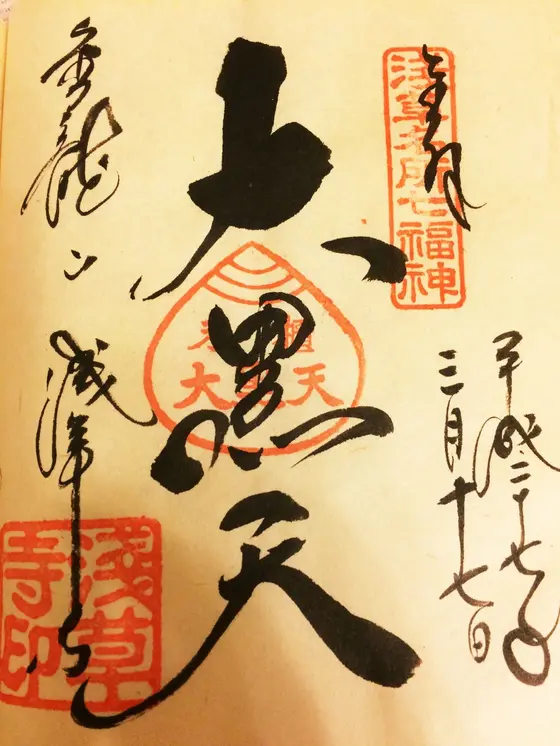 奉拝
浅草名所七福神
平成二十七年
三月十七日
大黒天
金龍山
浅草寺
淺草寺印